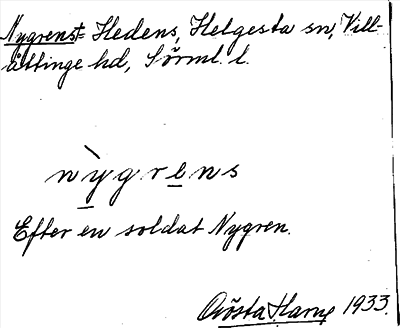 Nygrenst= Hedens, Helgesta sn, Vill-
åttinge hd, Sörml. l.
nỳgrens
Efter en soldat Nygren.
Gösta Harne 1933.